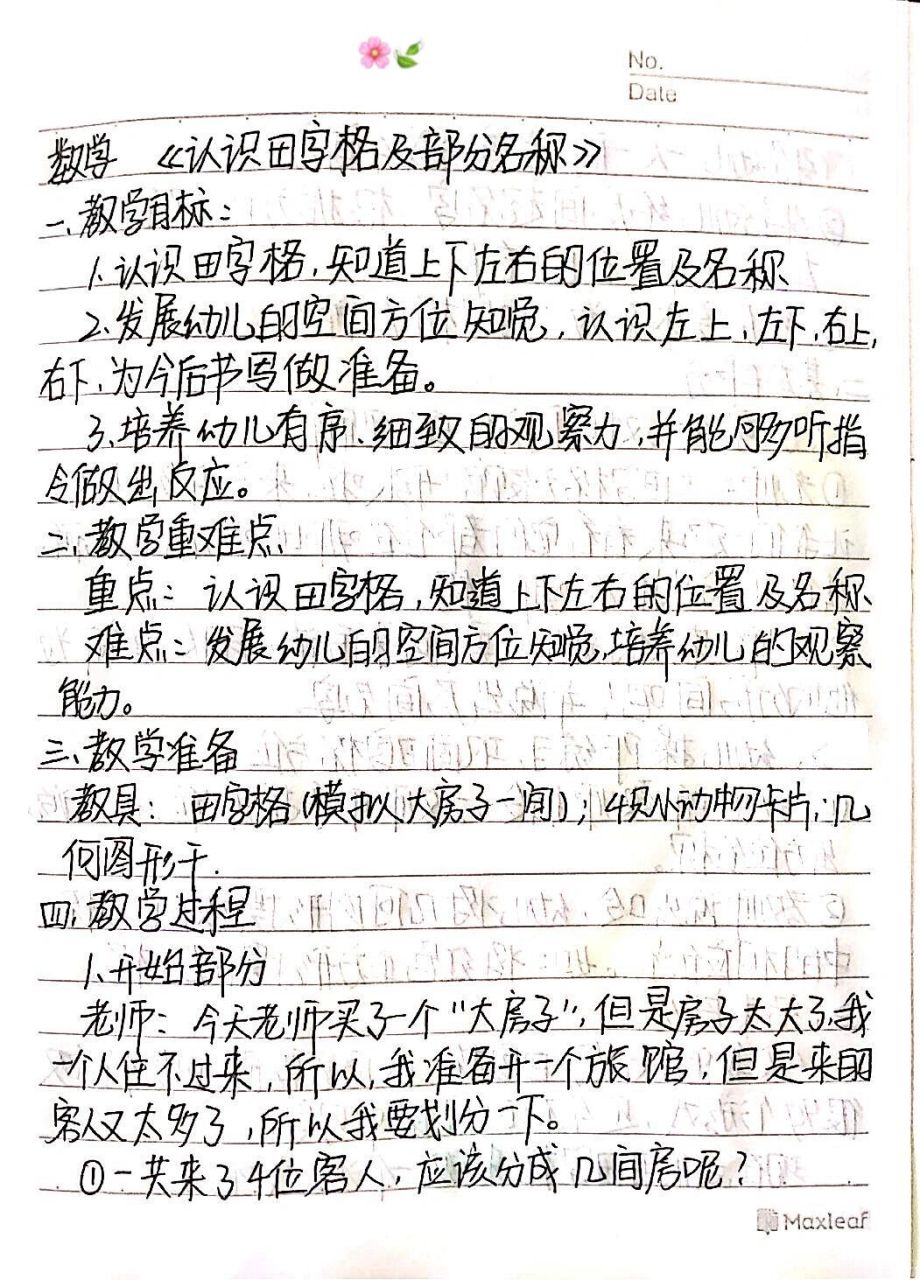 No.
Date
数学 《认识田字格及部分名称》
一、教学目标：
1、认识田字格，知道上下左右的位置及名称、
2、发展幼儿的空间方位知觉，认识左上，左下，右上，
右下，为今后书写做准备。
3、培养幼儿有序、细致的观察力，并能够听指
令做出反应。
二、教学重难点
重点：认识田字格，知道上下左右的位置及名称
难点：发展幼儿的空间方位知觉，培养幼儿的观察
能力。
三、教学准备
教具：田字格（模拟大房子一间）；4只小动物卡片；几
何图形干.
四、教学过程
1、开始部分
老师：今天老师买了一个“大房子”，但是房子太大了，我
一个人住不过来，所以，我准备开一个旅馆，但是来的
客人又太多了，所以我要划分一下。
①一共来了4位客人，应该分成几间房呢？
Maxleaf